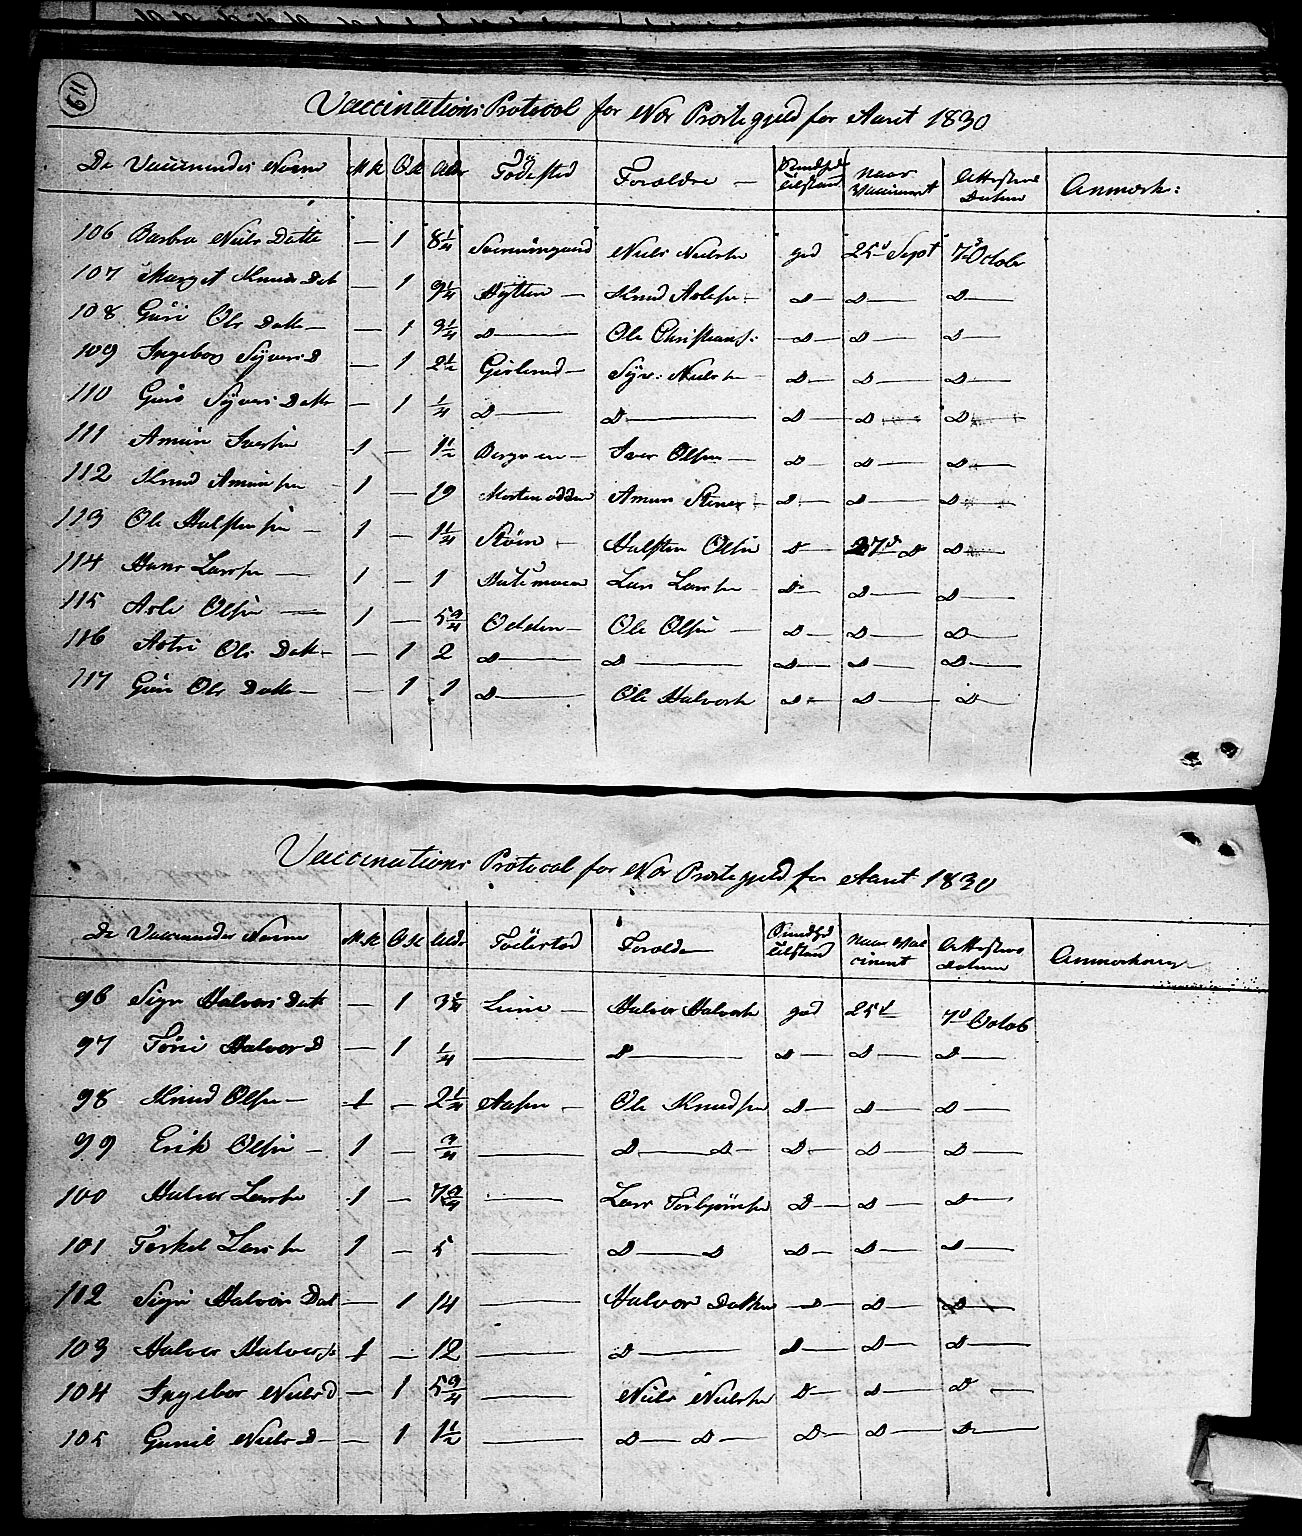 119
Vaccinations Protocol for Nes Præstegjeld for Aaret 1830
De Vaccineredes Navne M.K Q.K Alder Födested Forældre Sundheds Tilstand Naar Vaccineret Attestens Datum Anmærk:
106 Barbra Niels Datte — 1 8 1/4 Niels Nielsen god 25d Sept 7d Octobr
107 Marget Knuds Dat — 1 9 1/4 Hytten — Knud Aslesen D— D— D—
108 Guri Ols Datte — — 1 3 1/4 D— Ole Christians: D— D— D—
109 Ingebor Syvers D — 1 2 1/2 Syv: Nielsen D— D— D—
110 Guro Syvers Datte — 1 1/4 D— D— D— D— D—
111 Amun Iversen 1 — 1 1/2 Bergreen — Iver Olsen — D— D— D—
112 Knud Amunsen 1 — 19 Mortenodden Amun Stener D— D— D—
113 Ole Halstensen — 1 — 1 1/4 Støen — Halsten Olsen D— 27d D D—
114 Hans Larsen — 1 — 1 Lars Larsen D— D— D—
115 Asle Olsen — 1 — 5 3/4 Odden — Ole Olsen — D— D— D—
116 Astri Ols Datte — 1 2 D— D— D— D— D—
117 Guri Ols Datte — — 1 1 D— Ole Halvorsen D— D— D—
Vaccinations Protocol for Nes Præstegjeld for Aaret 1830
De Vaccineredes Navne M.K Q.K Alder Födested Forældre Sundhed Tilstand Naar Vaccineret Attestens Datum Anmærkning
96 Sigri Halvors Datte — 1 3 1/4 — Halvor Halvorsen god 25d 7d Octob
97 Töri Halvors D — 1 1/4 — D— D— D— D—
98 Knud Olsen — 1 — 2 1/4 Aasen — Ole Knudsen D— D— D—
99 Erik Olsen — 1 — 3/4 — D— D— D— D— D—
100 Halvor Larsen 1 — 7 3/4 — Lars Torbjönsen D— D— D—
101 Torkel Larsen 1 — 5 — D— D D— D— D—
112 Sigri Halvors Dat — 1 14 — Halvor Dokken D— D— D—
103 Halvor Halvorsen 1 — 12 — D— D— D— D—
104 Ingebor Niels D — 1 5 3/4 — Niels Nielsen D— D— D—
105 Gunil Niels D — — 1 1 1/2 — D— D— D— D— D—